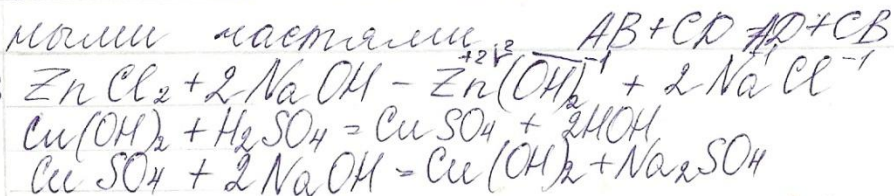 ными частями AB + CD = AD + CB
ZnCl₂ + 2NaOH - Zn⁺²(OH)₂⁻¹ + 2Na⁺¹Cl⁻¹
Cu(OH)₂ + H₂SO₄ = CuSO₄ + 2HOH
CuSO₄ + 2NaOH = Cu(OH)₂ + Na₂SO₄